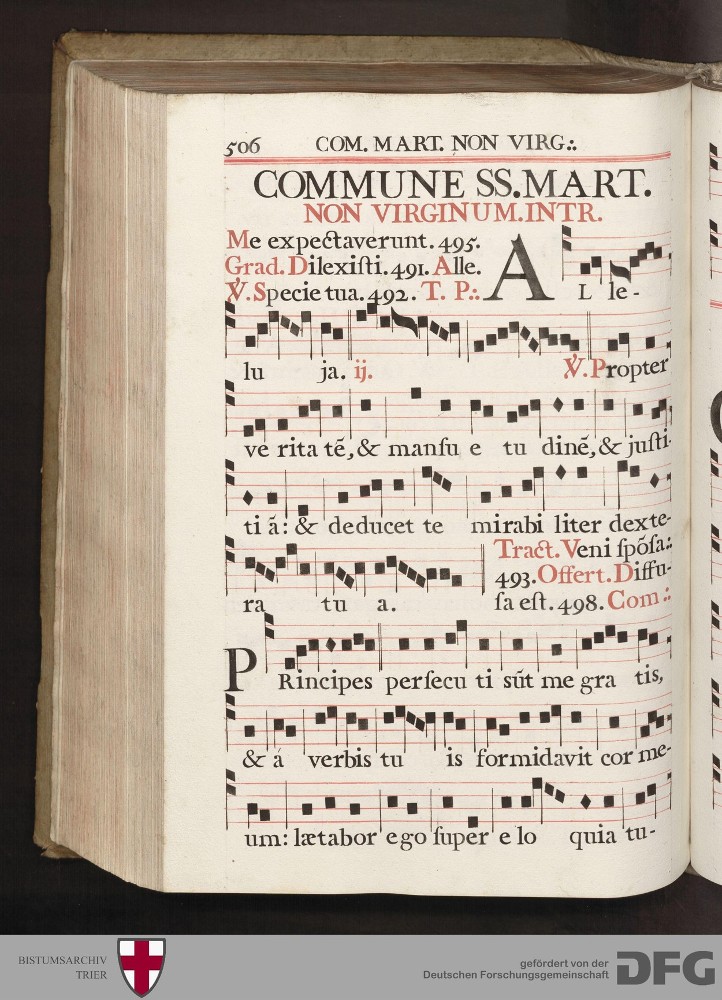 506 COM. MART. NON VIRG.:.
COMMUNE SS. MART.
NON VIRGINUM. INTR.
Me expectaverunt. 495.
Grad. Dilexiſti. 491. Alle.
℣. Specie tua. 492. T. P.:.
AL le-
lu ja. ij. ℣. Propter
ve rita tē, & manſu e tu dinē, & juſti-
ti ā: & deducet te mirabi liter dexte-
ra tu a.
Tract. Veni ſpōſa.:.
493. Offert. Diffu-
ſa eſt. 498. Com.:.
PRincipes perſecu ti sūt me gra tis,
& á verbis tu is formidavit cor me-
um: lætabor ego ſuper elo quia tu-
BISTUMSARCHIV
TRIER
gefördert von der
Deutschen Forschungsgemeinschaft
DFG